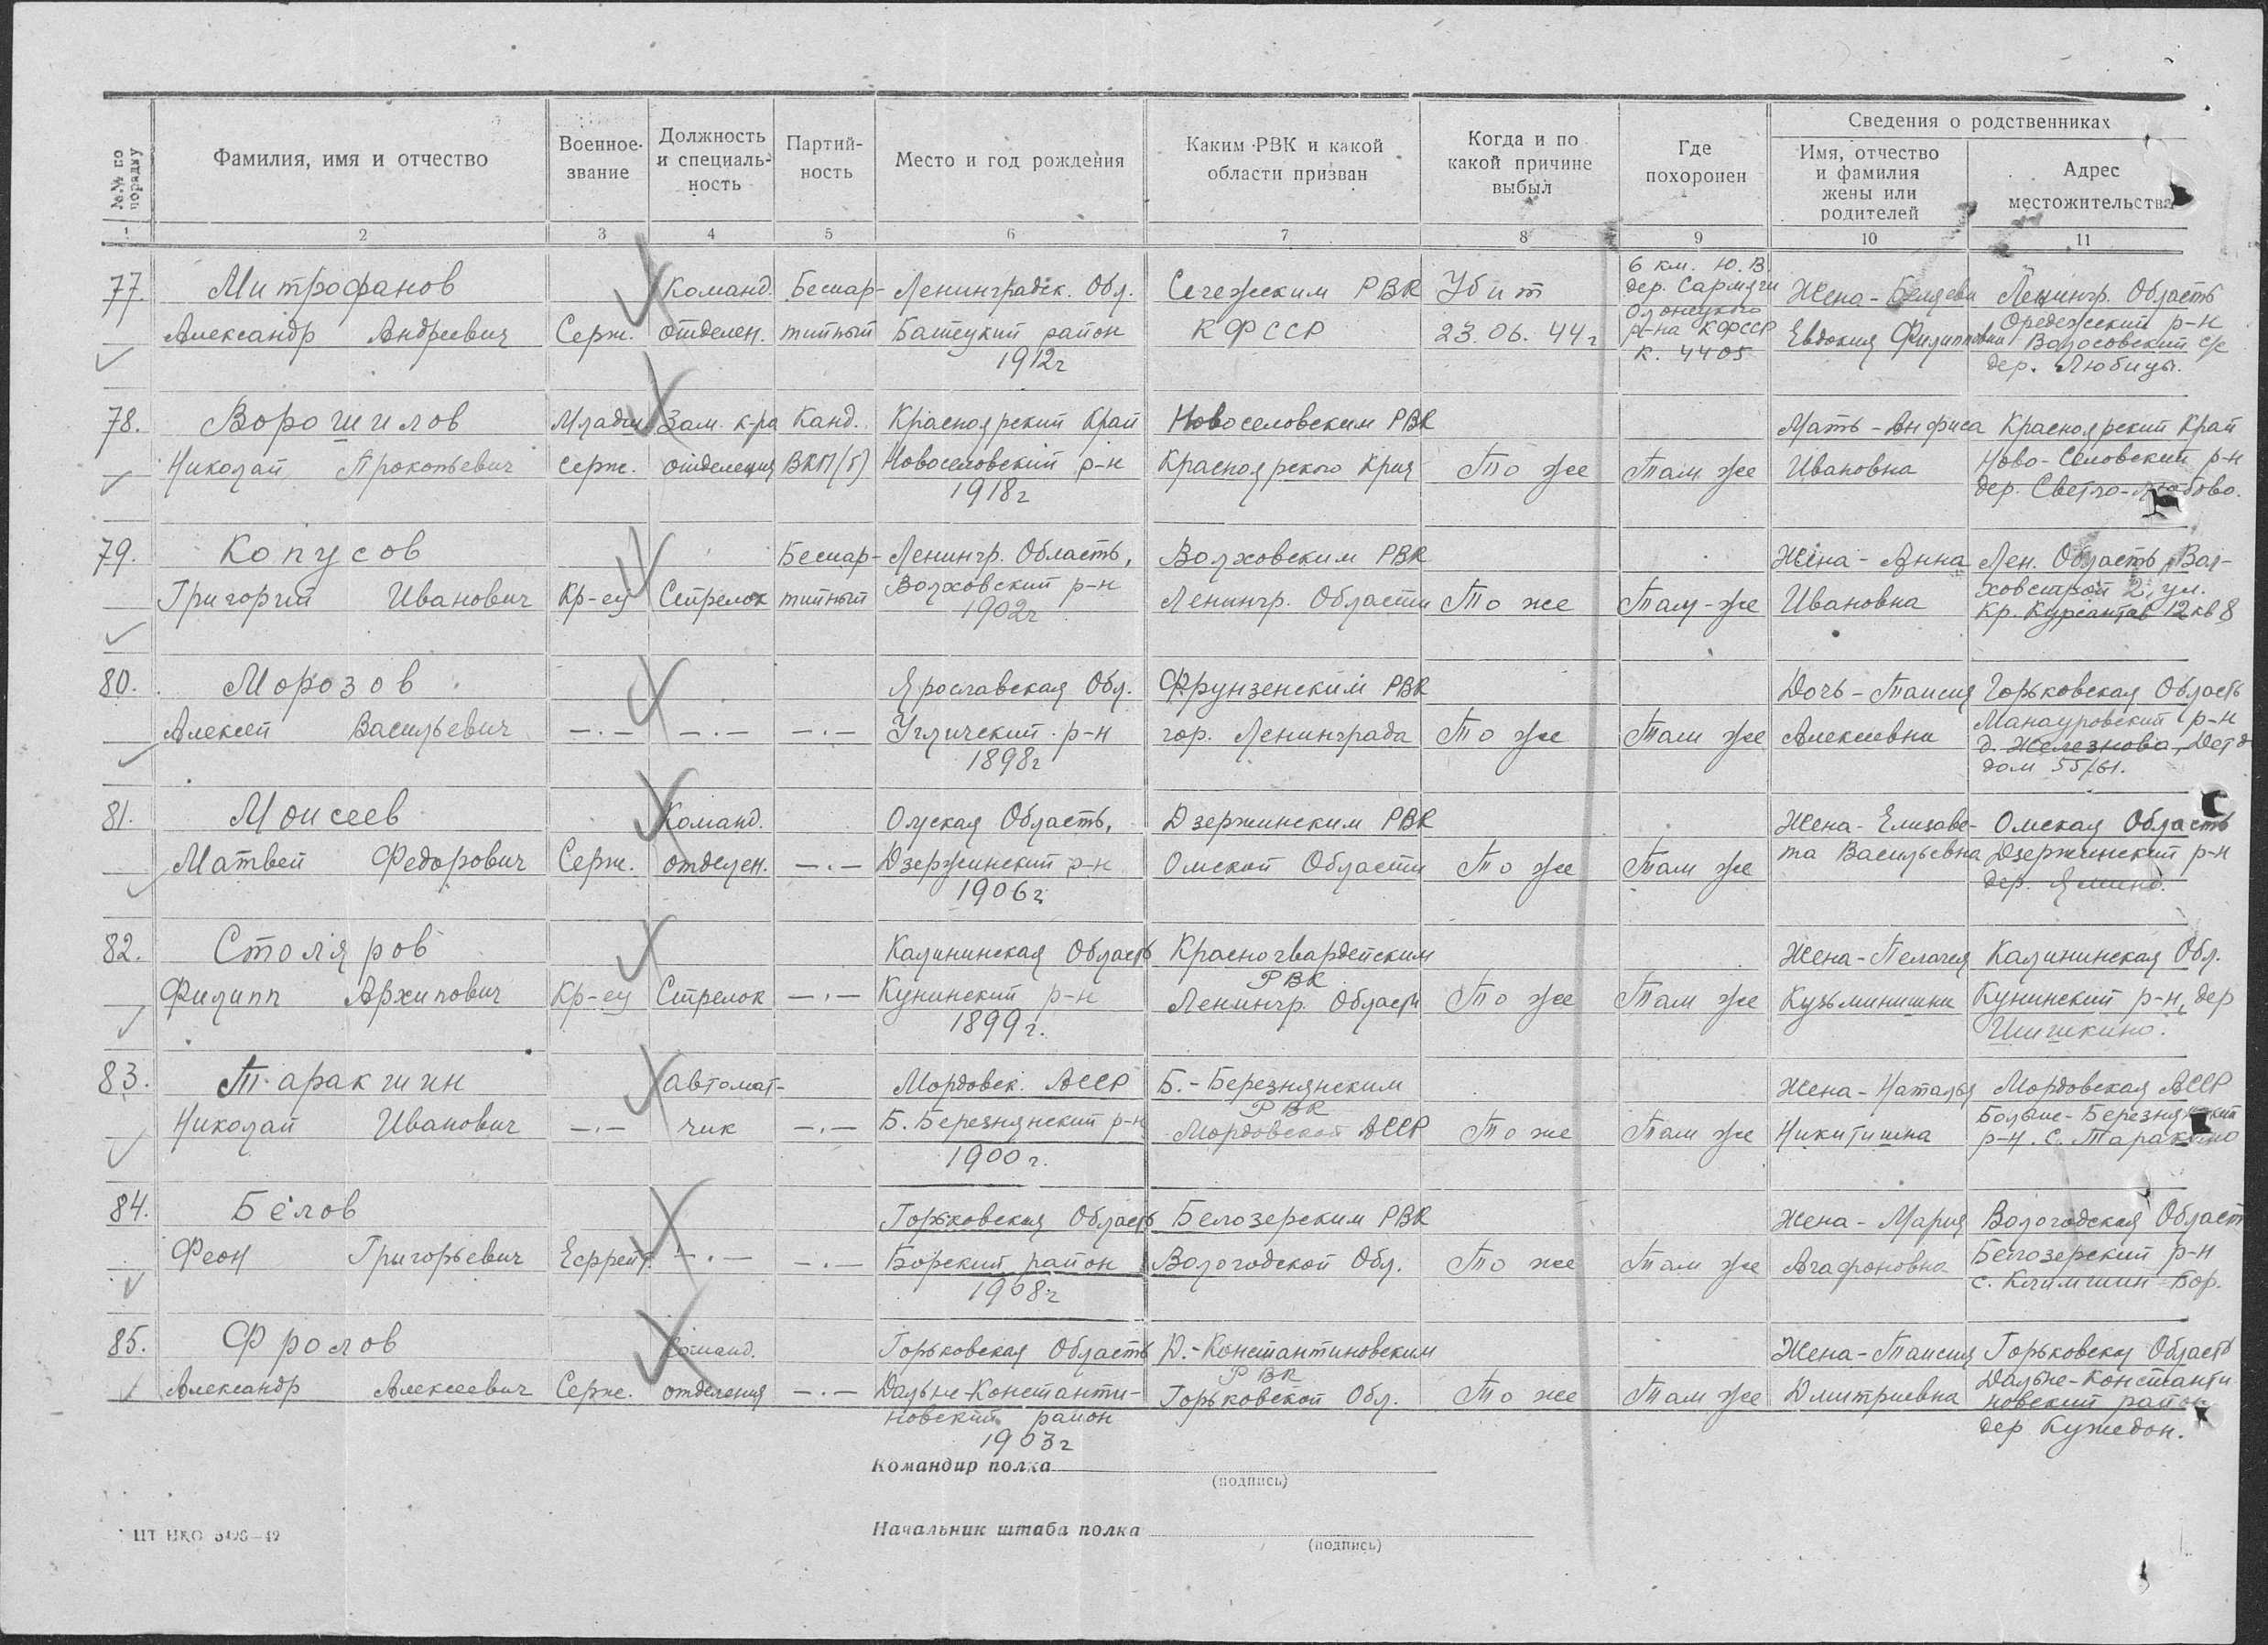 №№ по порядку
Фамилия, имя и отчество
Военное звание
Должность и специаль-ность
Партий-ность
Место и год рождения
Каким РВК и какой области призван
Когда и по какой причине выбыл
Где похоронен
Сведения о родственниках
Имя, отчество и фамилия жены или родителей
Адрес местожительства
1 2 3 4 5 6 7 8 9 10 11
77.
Митрофанов
Александр Андреевич
Серж.
Команд.
отделен.
Беспар-
тийный
Ленинградск. Обл.
Батецкий район
1912г
Сегежским РВК
КФССР
Убит
23.06.44г
6 км. Ю.В.
дер. Сармяги
Олонецкого
р-на КФССР
к. 4405
Жена -
Евдокия Филипповна
Ленингр. Область
Оредежский р-н
Волосовский с/с
дер. Любицы.
78.
Ворошилов
Николай Прокопьевич
Младш.
серж.
Зам. к-ра
отделения
Канд.
ВКП(б)
Красноярский Край
Новоселовский р-н
1918г
Новоселовским РВК
Красноярского Края
То же
Там же
Мать - Анфиса
Ивановна
Красноярский Край
Ново-Селовский р-н
дер. Светло-Любово.
79.
Копусов
Григорий Иванович
Кр-ец
Стрелок
Беспар-
тийный
Ленингр. Область,
Волховский р-н
1902г
Волховским РВК
Ленингр. Области
То же
Там-же
Жена - Анна
Ивановна
Лен. Область, Вол-
ховстрой 2, ул.
Кр. Курсантов 12 кв 8
80.
Морозов
Алексей Васильевич
—.—
—.—
—.—
Ярославская Обл.
Угличский р-н
1898г
Фрунзенским РВК
гор. Ленинграда
То же
Там же
Дочь - Таисия
Алексеевна
Горьковская Область
Манауровский р-н
д. Железново, Дет
дом 55/61.
81.
Моисеев
Матвей Федорович
Серж.
Команд.
отделен.
—.—
Омская Область,
Дзержинский р-н
1906г
Дзержинским РВК
Омской Области
То же
Там же
Жена - Елизаве-
та Васильевна
Омская Область
Дзержинский р-н
дер.
82.
Столяров
Филипп Архипович
Кр-ец
Стрелок
—.—
Калининская Область
Кунинский р-н
1899г.
Красногвардейским
РВК
Ленингр. Области
То же
Там же
Жена - Пелагея
Кузьминишна
Калининская Обл.
Кунинский р-н, дер
Шишкино.
83.
Таракшин
Николай Иванович
—.—
автомат-
чик
—.—
Мордовск. АССР
Б. Березнянский р-н
1900г.
Б.-Березнянским
РВК
Мордовской АССР
То же
Там же
Жена - Наталья
Никитишна
Мордовская АССР
Больше-Березнянский
р-н. с.
84.
Белов
Феон Григорьевич
Ефрейт.
—.—
—.—
Горьковская Область
Борский район
1908г
Белозерским РВК
Вологодской Обл.
То же
Там же
Жена - Мария
Агафоновна
Вологодская Област
Белозерский р-н
с. Климшин Бор.
85.
Фролов
Александр Алексеевич
Серж.
Команд.
отделения
—.—
Горьковская Область
Дальне-Константи-
новский район
1903г
Д.-Константиновским
РВК
Горьковской Обл.
То же
Там же
Жена - Таисия
Дмитриевна
Горьковская Область
Дальне-Константи
новский район
дер Кужедон.
Командир полка
(подпись)
Начальник штаба полка
(подпись)